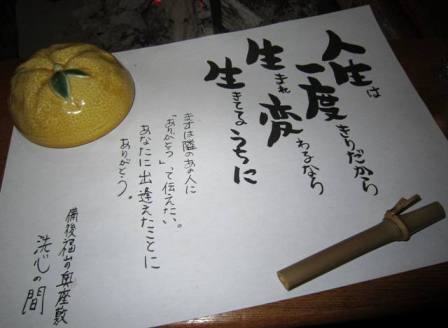 人生は
一度きりだから
生まれ変わるなら
生きてるうちに
まずは隣のあな人に
「ありがとう」って伝えたい。
あなたに出逢えたことに
ありがとう。
備後福山の奥座敷
洗心の間